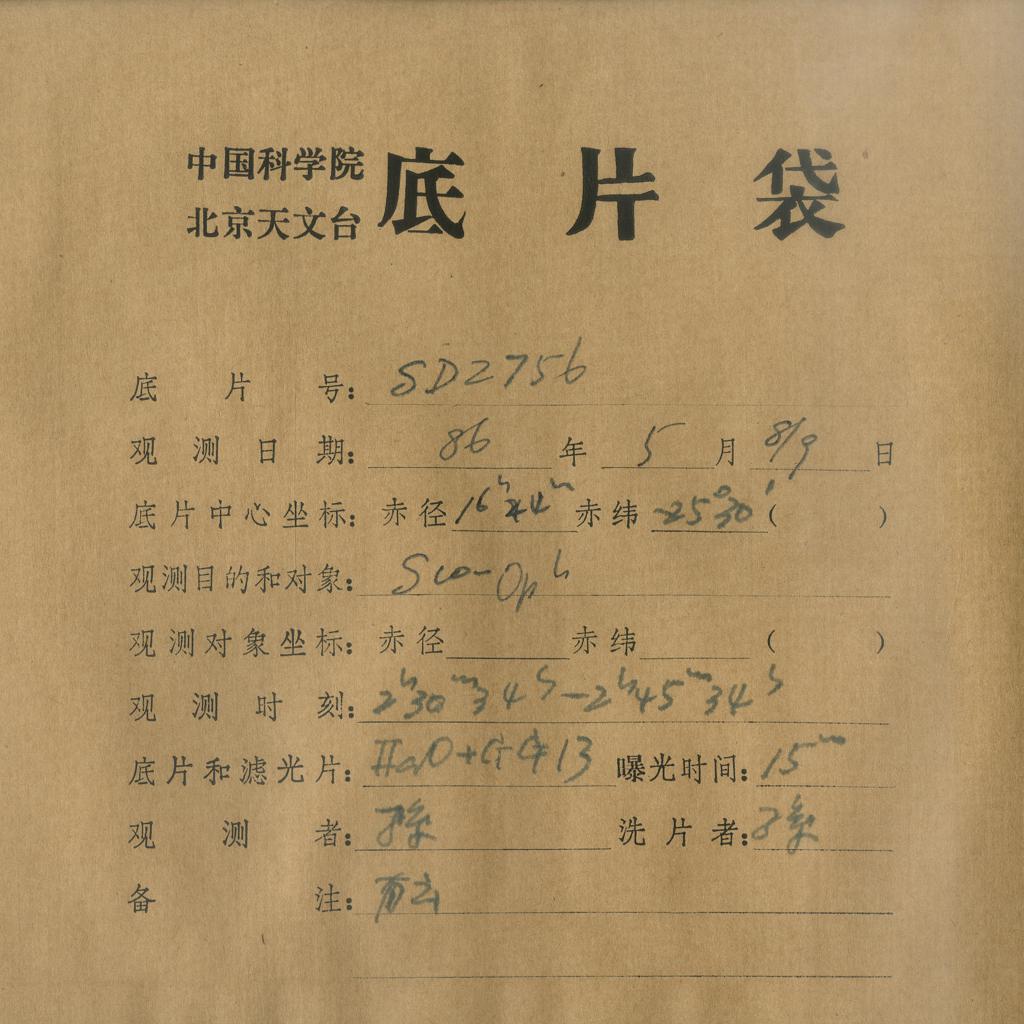 中国科学院
北京天文台
底片袋
底片号：SD2756
观测日期：86年5月8/9日
底片中心坐标：赤径16h24m赤纬-25°30′（ ）
观测目的和对象：Sco-Oph
观测对象坐标：赤径 赤纬 （ ）
观测时刻：2h30m34s-2h45m34s
底片和滤光片：IIaO+GG13 曝光时间：15m
观测者：孙 洗片者：孙
备注：有云